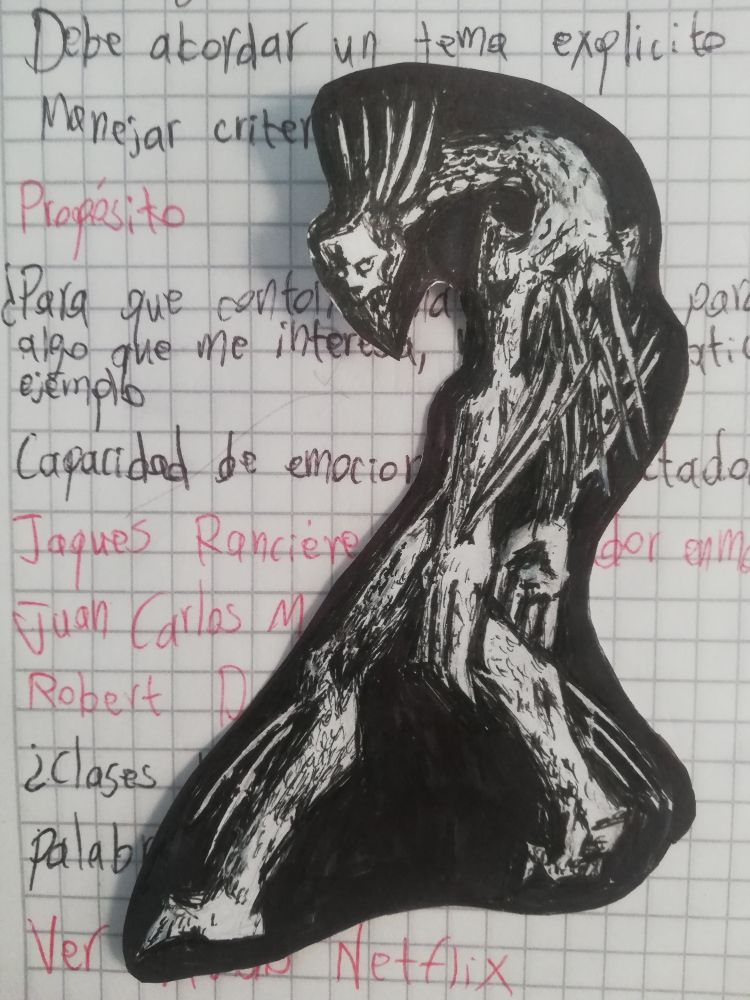 Debe abordar un tema explicito
Manejar criter
Propósito
¿Para que
algo que me interesa,
ejemplo
Capacidad de emocion
Jaques Ranciére dor enma
Juan Carlos M
Robert D
¿Clases
palab
Ver Netflix